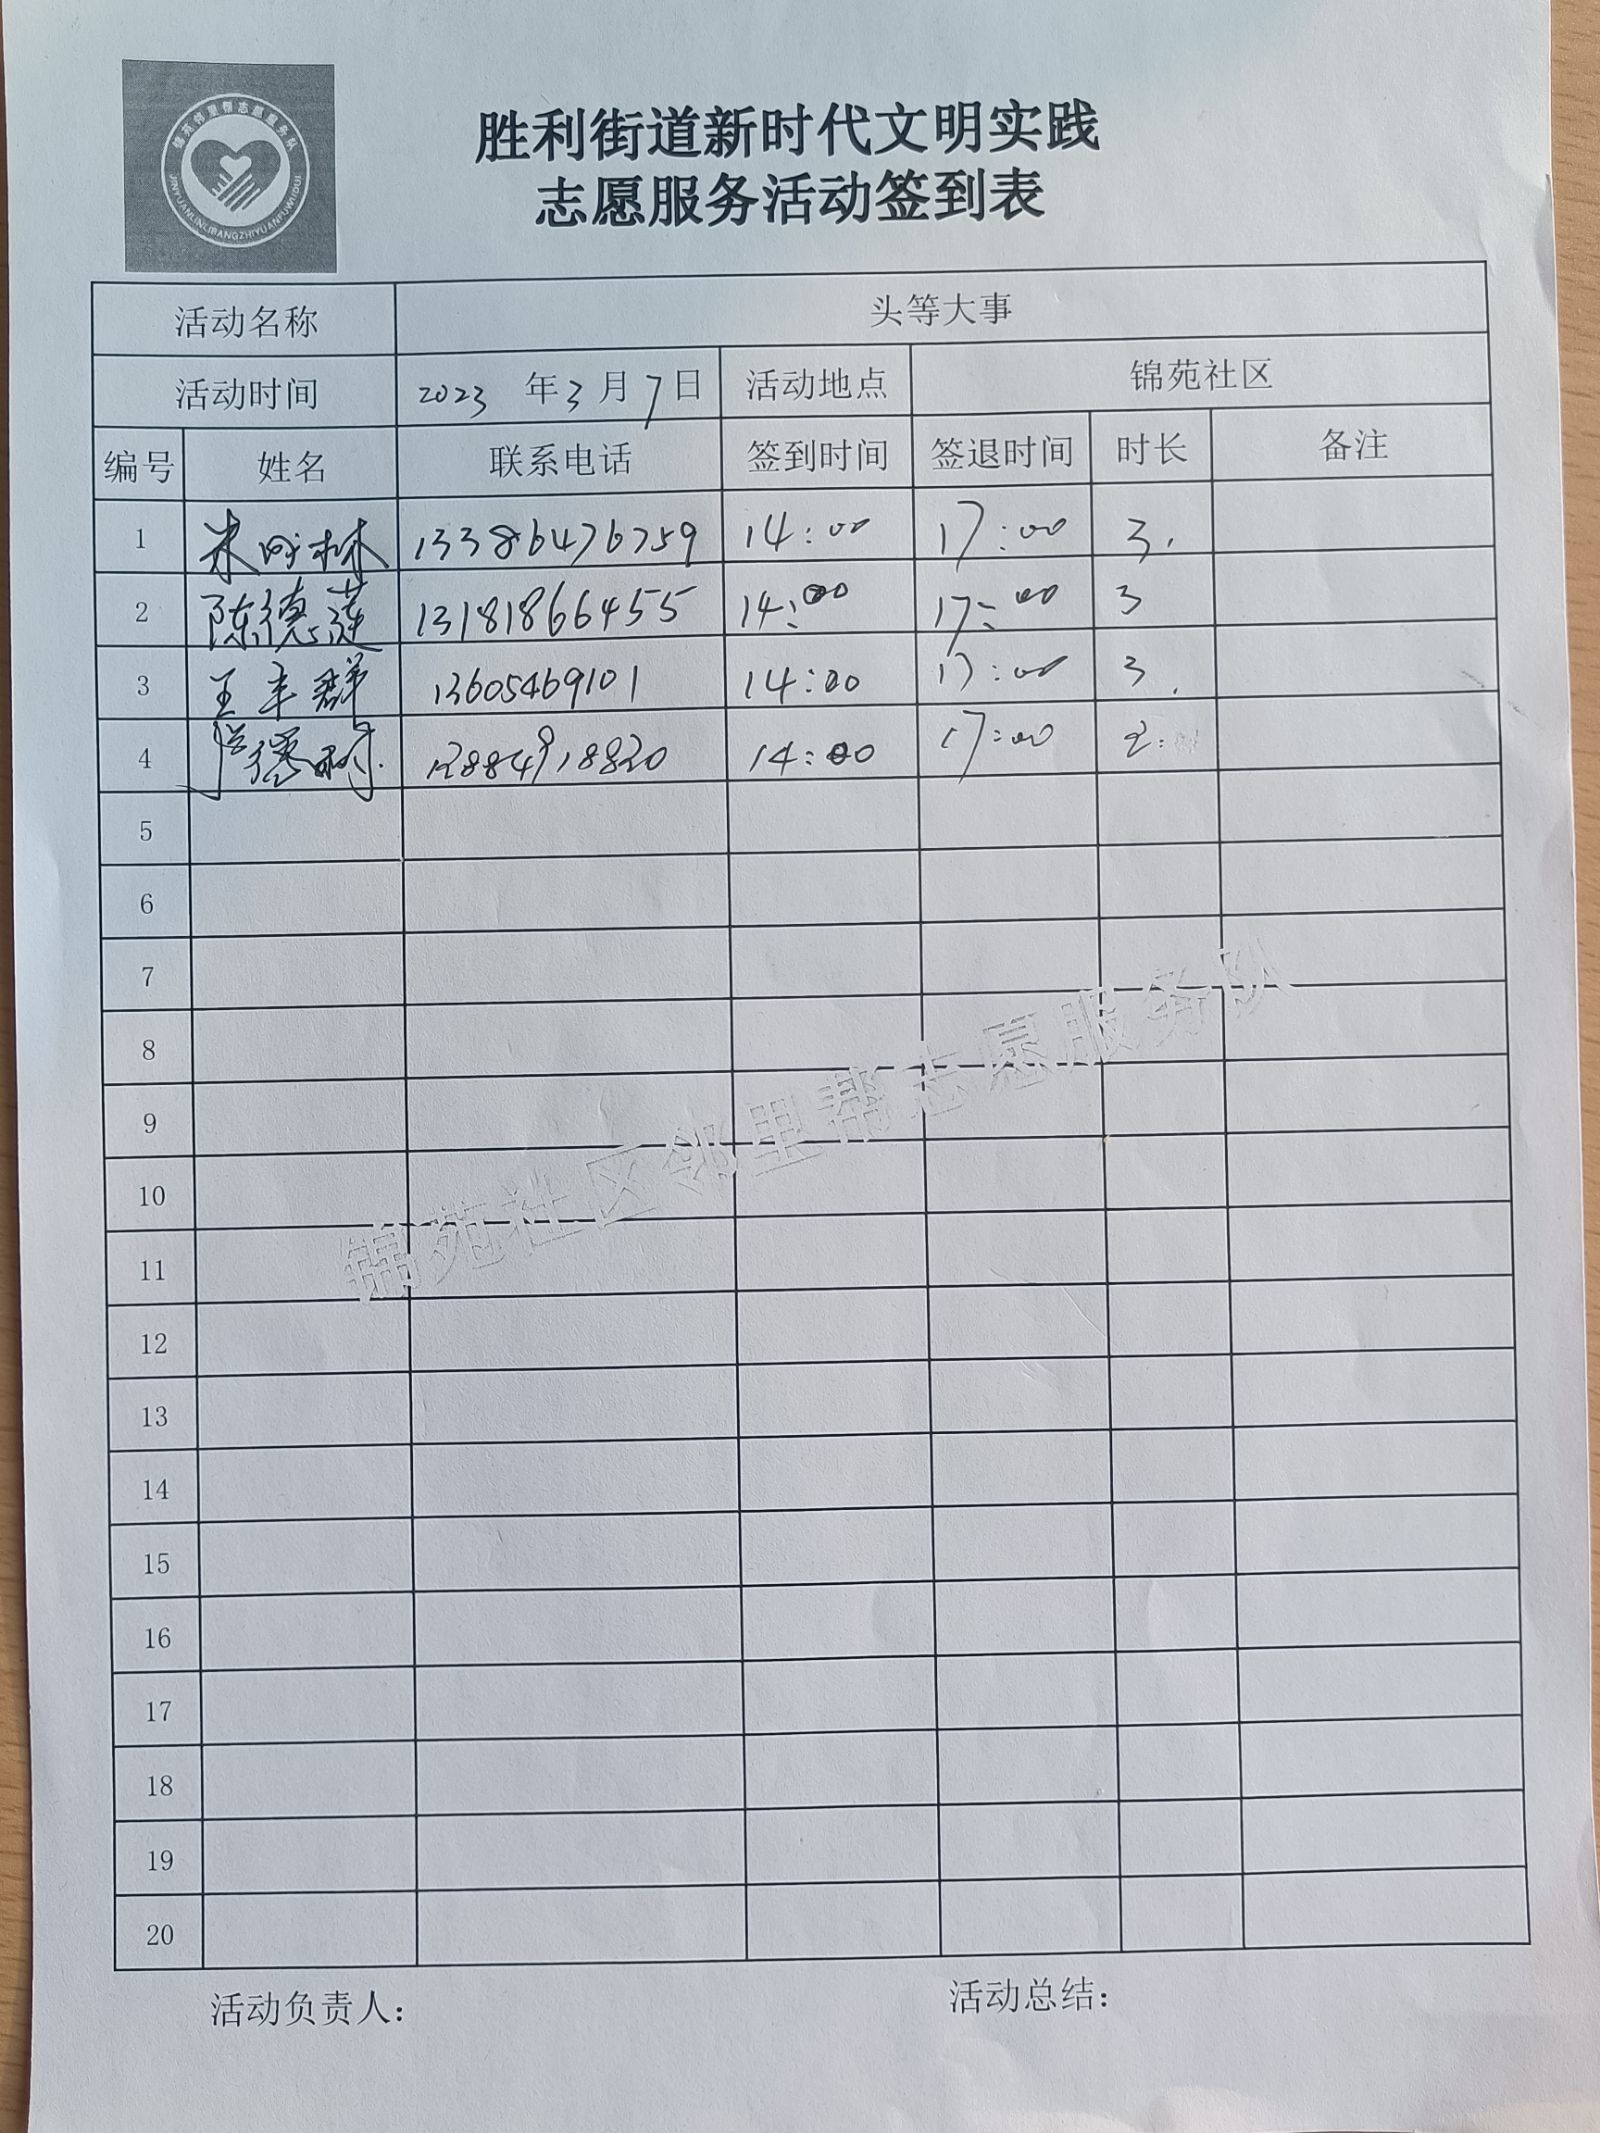 锦苑邻里帮志愿服务队
JINYUANLINLIBANGZHIYUANFUWUDUI
胜利街道新时代文明实践
志愿服务活动签到表
活动名称 头等大事
活动时间 2023 年 3 月 7 日 活动地点 锦苑社区
编号 姓名 联系电话 签到时间 签退时间 时长 备注
1 13386476759 14:00 17:00 3.
2 陈德莲 13181866455 14:00 17:00 3
3 13605469101 14:00 17:00 3.
4 14:00 17:00
5
6
7
8
9
10
11
12
13
14
15
16
17
18
19
20
锦苑社区邻里帮志愿服务队
活动负责人: 活动总结: